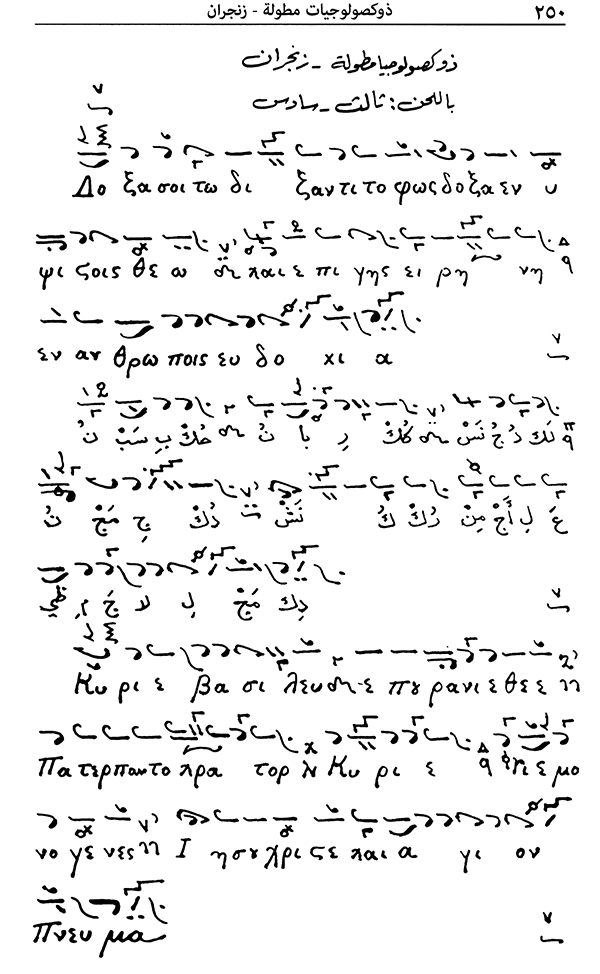 ٢٥٠ ذوكصولوجيات مطولة - زنجران
ذوكصولوجيا مطولة - زنجران
باللحن: ثالث - سادس
Δο ξα σοι τω δι ξαν τι το φως δο ξα εν υ
ψι ςοις θε ω και ε πι γης ει ρη νη
εν αν θρω ποις ευ δο κι α
نُ سَبْ بِ حُكْ نُ با رِ كُكْ نَسْ جُدْ لَكَ
نُ مَجْ جِ دُكْ نَشْ كُ رُكْ مِنْ أَجْ لِ عَ
ظيـ مِ جَ لا لِ مَجْ دِكَ
Κυ ρι ε βα σι λευ ε πȣ ρα νι ε θε ε
Πα τερ παν το κρα τορ Κυ ρι ε Υι ε μο
νο γε νες Ι η σου χρι ςε και α γι ον
Πνευ μα